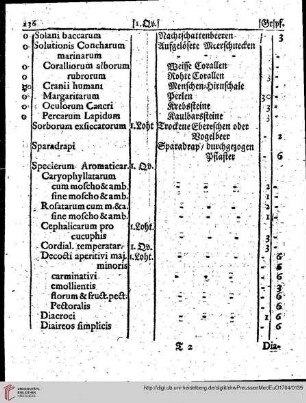 136 |1.Qv.| |Gr|pf.
o Solani baccarum Nachtschattenbeeren 3
o Solutionis Concharum Aufgelösete Meerschnecken
marinarum
o Coralliorum alborum Weisse Corallen
o rubrorum Rohte Corallen
Cranii humani Menschen-Hirnschale
o Margaritarum Perlen 30
o Oculorum Cancri Krebssteine
o Percarum Lapidum Kaulbarssteine
Sorborum exsiccatorum 1.Loht Trockene Ebereschen oder
Vogelbeer 2
Sparadrapi Sparadrap/ durchgezogen
Pflaster 6
Specierum Aromaticar. 1. Qv.
Caryophyllatarum
cum moscho & amb. 2
sine moscho & amb. 1
Rosatarum cum m. & a.
sine moscho & amb. 1
Cephalicarum pro 1.Loht.
cucuphis 3
Cordial. temperatar. 1. Qv.
Decocti aperitivi maj. 1.Loht. 6
minoris 6
carminativi 6
emollientis 3
florum & fruct. pect. 6
Pectoralis 6
Diacroci 1 6
Diaireos simplicis 6
T 2 Dia-